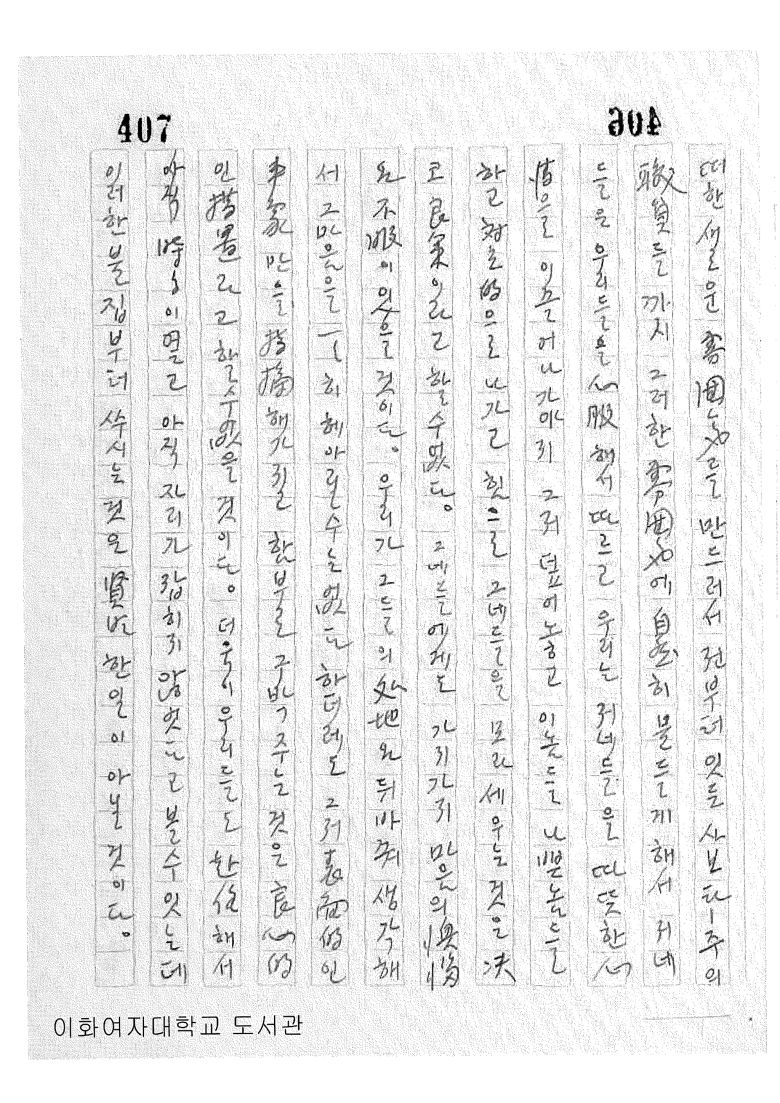 407
406
떠한 새로운 雰圍氣를 만드러서 전부터 잇든 사보타-주의
職員들 까지 그러한 雰圍氣에 自然히 물들게 해서 저네
들은 우리들을 心服해서 따르고 우리는 저네들을 따뜻한 心
情으로 이끌어나가야지 그저 덮어놓고 이놈들 나쁜놈들
하고 對立的으로 나가고 힘으로 그네들을 모라 세우는 것은 決
코 良策이라고 할수없다。 그네들에게도 가지가지 마음의 懊惱
와 不服이 잇을 것이다。 우리가 그들의 處地와 뒤바꿔 생각해
서 그 마음을 一一히 헤아릴수는 없다 하더래도 그저 表面的인
事象만을 指摘해가지고 함부로 구박 주는 것은 良心的
인 措置라고 할수없을 것이다。 더욱이 우리들도 한 해서
아직 時日이 옅고 아직 자리가 잡히지 않엇다고 볼수잇는데
이러한 불집부터 쑤시는 것은 賢明한일이 아닐 것이다。
이화여자대학교 도서관